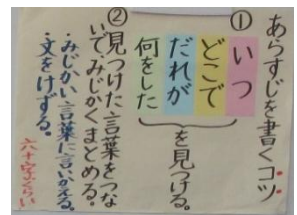 あらすじを書くコツ
①
いつ
どこで
だれが
何をした
を見つける。
②見つけた言葉をつな
いで、みじかくまとめる。
・みじかい言葉に言いかえる。
・文をけずる。
六十字ぐらい